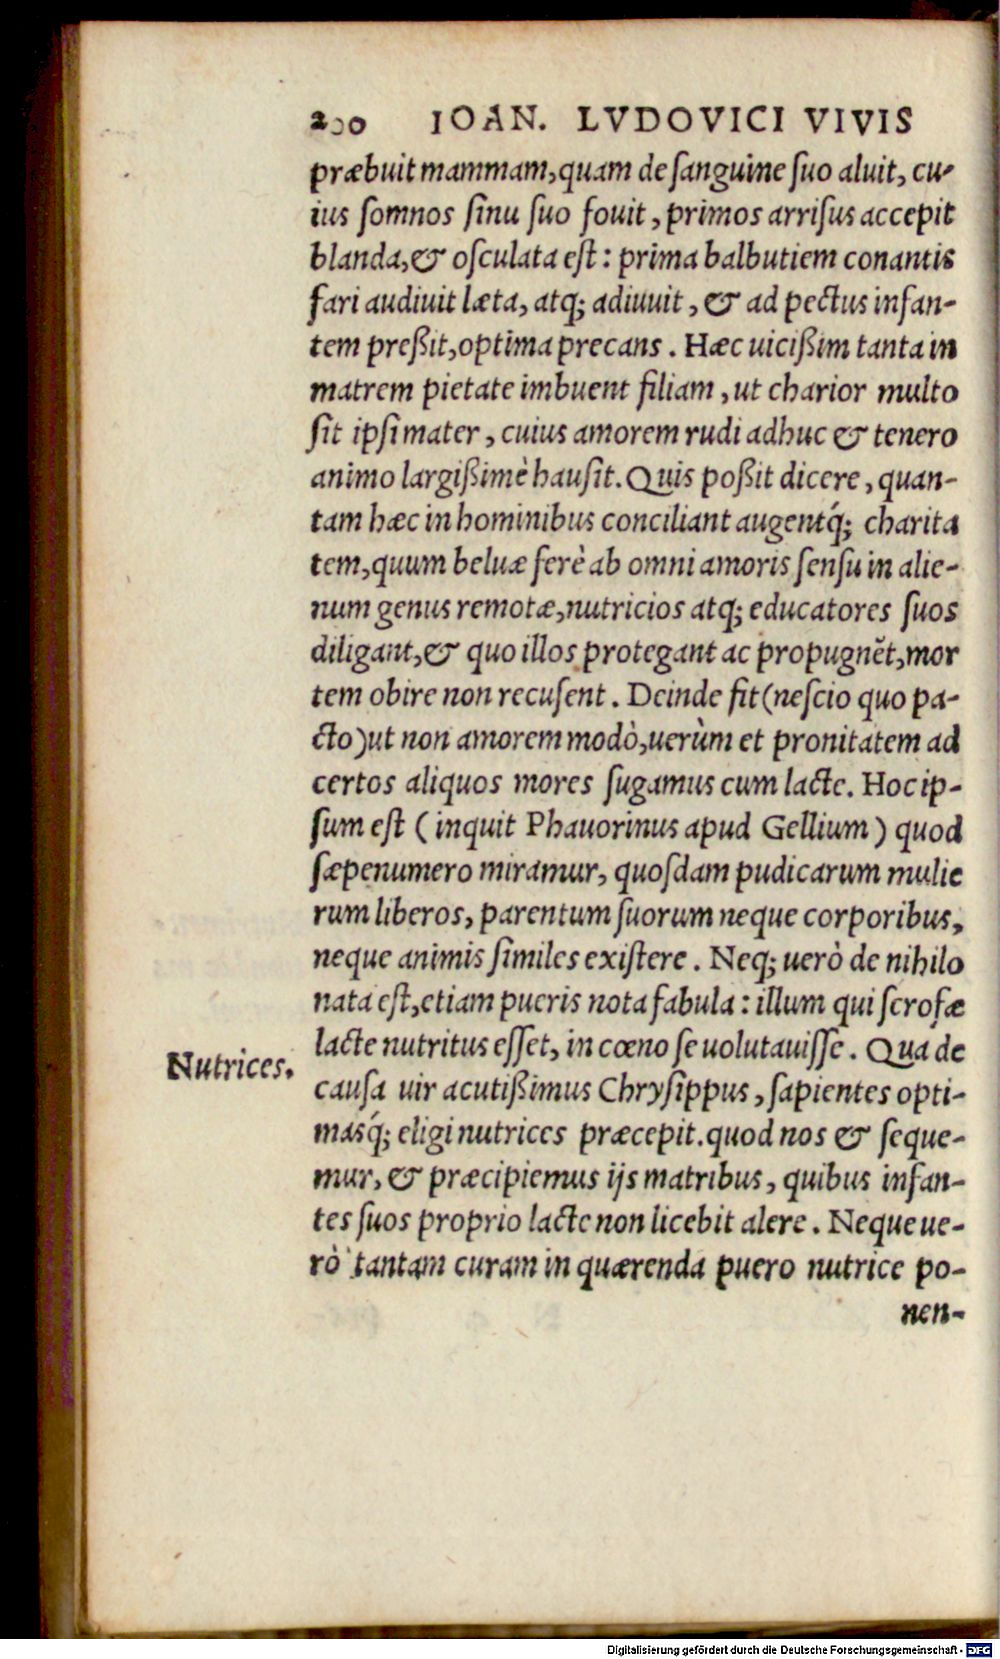 200 IOAN. LVDOVICI VIVIS
præbuit mammam, quam de ſanguine ſuo aluit, cu-
ius ſomnos ſinu ſuo fouit, primos arriſus accepit
blanda, & oſculata eſt: prima balbutiem conantis
fari audiuit læta, atq; adiuuit, & ad pectus infan-
tem preßit, optima precans. Hæc uicißim tanta in
matrem pietate imbuent filiam, ut charior multo
ſit ipſi mater, cuius amorem rudi adhuc & tenero
animo largißimè hauſit. Quis poßit dicere, quan-
tam hæc in hominibus conciliant augentq́; charita
tem, quum beluæ ferè ab omni amoris ſenſu in alie-
num genus remotæ, nutricios atq; educatores ſuos
diligant, & quo illos protegant ac propugnẽt, mor
tem obire non recuſent. Deinde fit (neſcio quo pa-
cto) ut non amorem modò, uerùm et pronitatem ad
certos aliquos mores ſugamus cum lacte. Hoc ip-
ſum eſt (inquit Phauorinus apud Gellium) quod
ſæpenumero miramur, quoſdam pudicarum mulie
rum liberos, parentum ſuorum neque corporibus,
neque animis ſimiles exiſtere. Neq; uerò de nihilo
nata eſt, etiam pueris nota fabula: illum qui ſcrofæ
lacte nutritus eſſet, in cœno ſe uolutauiſſe. Qua de
Nutrices.
cauſa uir acutißimus Chryſippus, ſapientes opti-
masq́; eligi nutrices præcepit. quod nos & ſeque-
mur, & præcipiemus ijs matribus, quibus infan-
tes ſuos proprio lacte non licebit alere. Neque ue-
rò tantam curam in quærenda puero nutrice po-
nen-
Digitalisierung gefördert durch die Deutsche Forschungsgemeinschaft - DFG